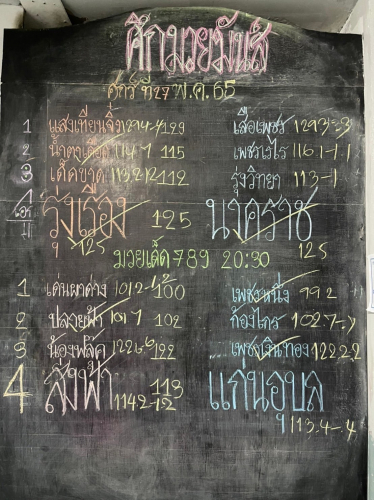 ศึกมวยมันส์
ศุกร์ ที่ 27 พ.ค. 65
1 แสงเทียนจิ๋ว 129 เสือเพชร 129.3-.3
2 น้ำตาเดือด 114.7 115 เพชรเวไร 116.1-1.1
3 เด็ดขาด 112 รุ่งวิทยา 113-1
4 รุ่งเรือง 125 นงคราช
125 125
มวยเด็ด 789 20:30
1 เด่นผาด่าง 101.2-1.2 100 เพชรหนึ่ง 99.2
2 ปลายฟ้า 101.7 102 ก้องไกร 102.7-.7
3 น้องฟลุ๊ค 122.6 122 เพชรเงินทอง 122.2-.2
4 สิงฟ้า 113 แก่นอุบล
114.2-1.2 113.4-.4